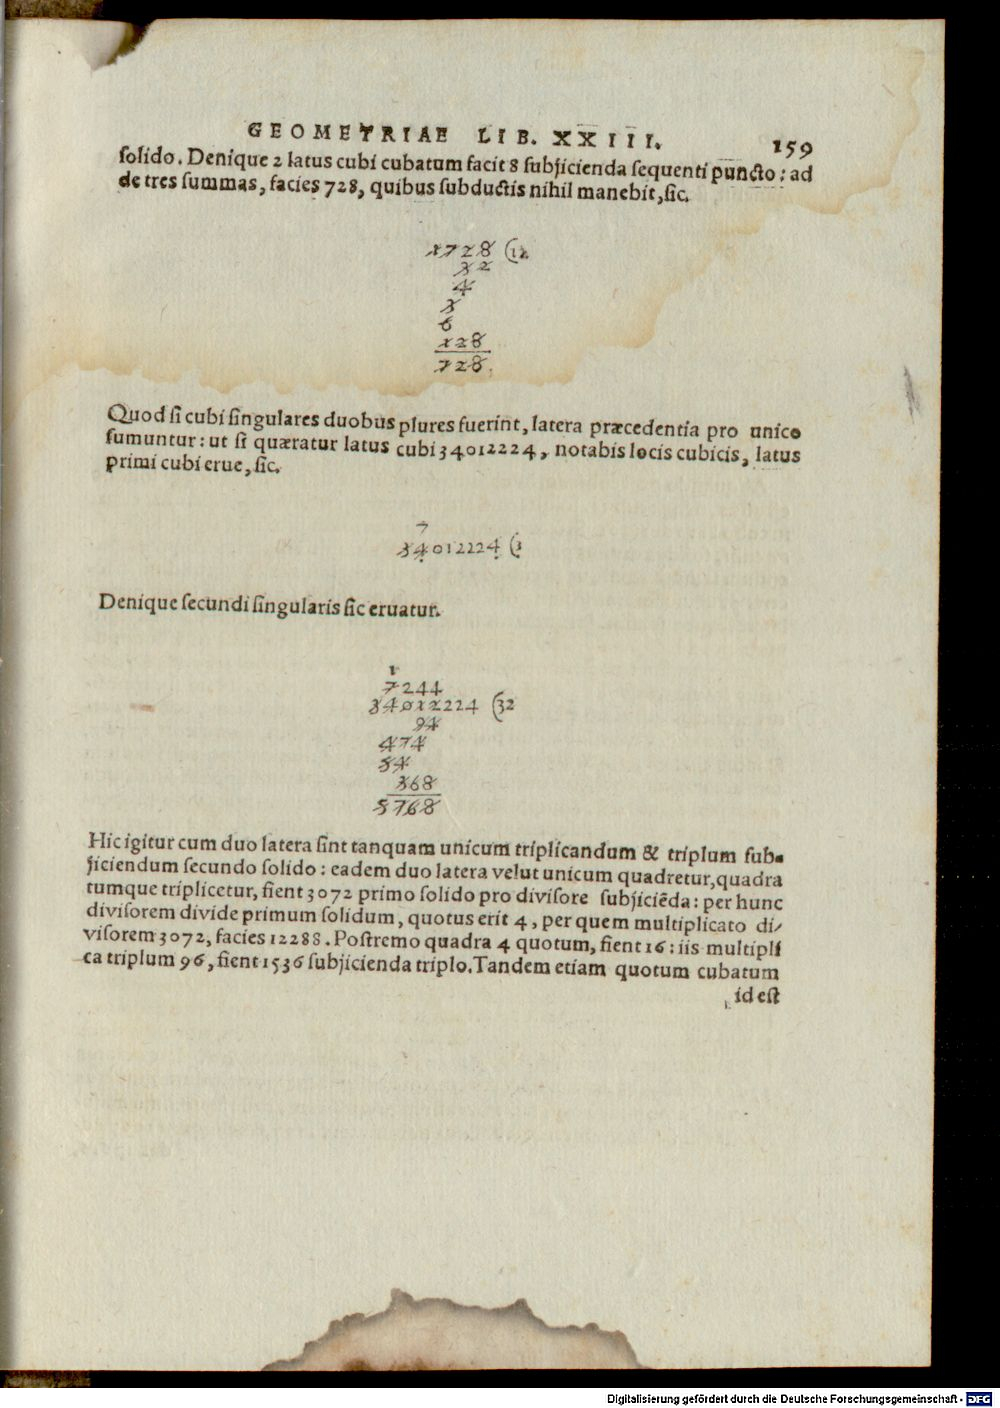 GEOMETRIAE LIB. XXIII. 159
solido. Denique 2 latus cubi cubatum facit 8 subjicienda sequenti puncto: ad
de tres summas, facies 728, quibus subductis nihil manebit, sic.
1728 (12
32
4
3
6
128
728
Quod si cubi singulares duobus plures fuerint, latera præcedentia pro unico
sumuntur: ut si quæratur latus cubi 34012224, notabis locis cubicis, latus
primi cubi erue, sic.
7
34012224 (3
Denique secundi singularis sic eruatur.
1
7244
34012224 (32
94
474
54
368
5768
Hic igitur cum duo latera sint tanquam unicum triplicandum & triplum sub-
jiciendum secundo solido: eadem duo latera velut unicum quadretur, quadra
tumque triplicetur, fient 3072 primo solido pro divisore subjiciẽda: per hunc
divisorem divide primum solidum, quotus erit 4, per quem multiplicato di-
visorem 3072, facies 12288. Postremo quadra 4 quotum, fient 16: iis multipli
ca triplum 96, fient 1536 subjicienda triplo. Tandem etiam quotum cubatum
id est
Digitalisierung gefördert durch die Deutsche Forschungsgemeinschaft - DFG